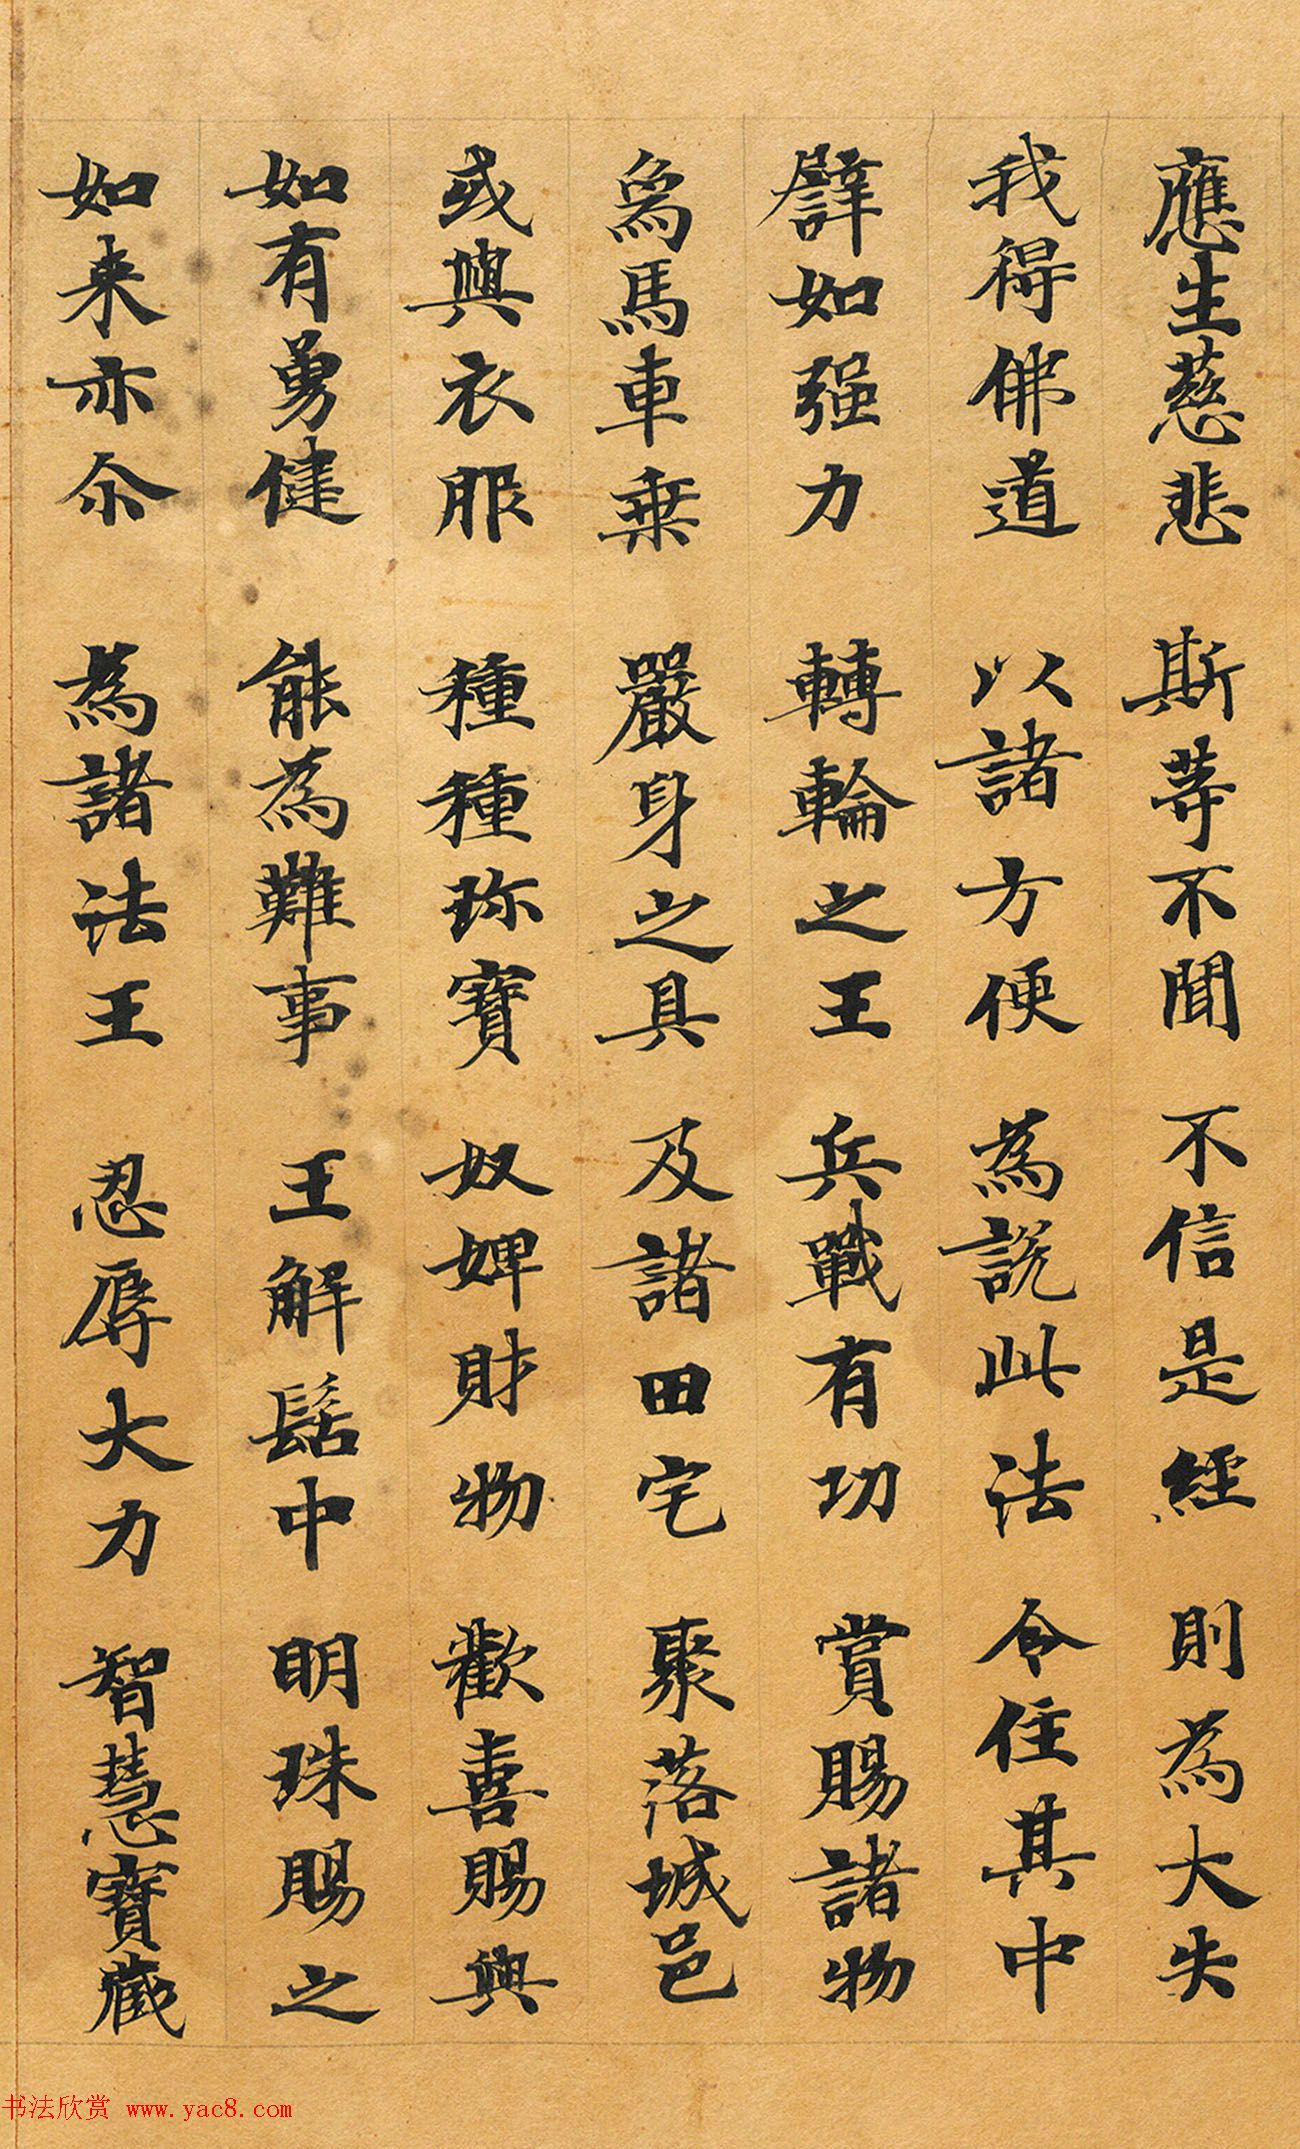 應生慈悲 斯等不聞 不信是經 則為大失
我得佛道 以諸方便 為說此法 令住其中
譬如强力 轉輪之王 兵戰有功 賞賜諸物
爲馬車乗 嚴身之具 及諸田宅 聚落城邑
或與衣服 種種珎寶 奴婢財物 歡喜賜與
如有勇健 能為難事 王解髻中 明珠賜之
如来亦尒 為諸法王 忍辱大力 智慧寶藏
书法欣赏 www.yac8.com